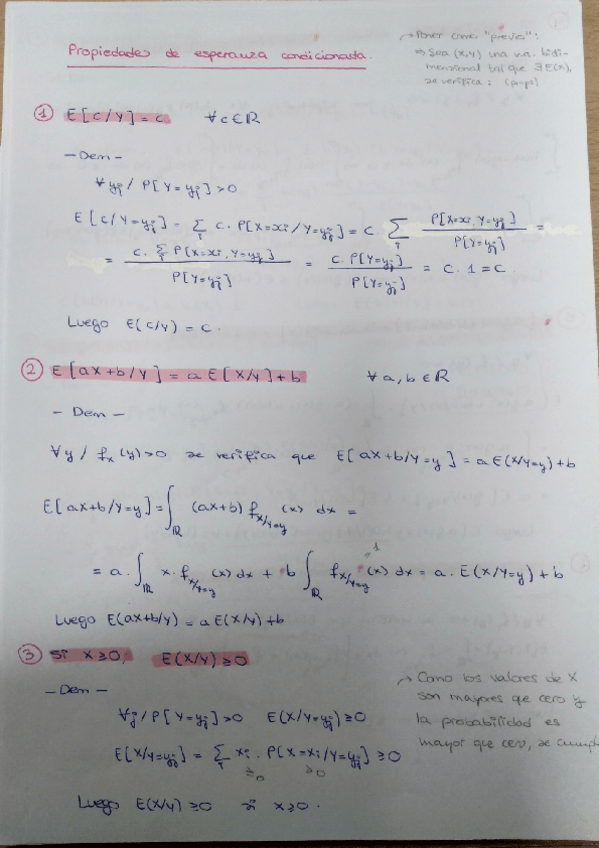 Propiedades de esperanza condicionada.
→ Poner como "previo":
⇒ Sea (X,Y) una v.a. bidi-
mensional tal que ∃E(X),
se verifica: (props)
① E[c/Y] = c ∀c∈ℝ
— Dem —
∀yj / P[Y=yj]>0
E[c/Y=yj] = Σi c · P[X=xi/Y=yj] = c Σi P[X=xi, Y=yj] / P[Y=yj] =
= c · Σi P[X=xi, Y=yj] / P[Y=yj] = c · P[Y=yj] / P[Y=yj] = c · 1 = c
Luego E(c/Y) = c.
② E[aX+b/Y] = a E[X/Y]+b ∀a,b∈ℝ
— Dem —
∀y / fx(y)>0 se verifica que E[aX+b/Y=y] = a E(X/Y=y)+b
E[aX+b/Y=y] = ∫ℝ (ax+b) fX/Y=y (x) dx =
= a · ∫ℝ x · fX/Y=y (x) dx + b ∫ℝ fX/Y=y (x) dx = a · E(X/Y=y) + b
1
Luego E(aX+b/Y) = a E(X/Y)+b
③ Si X≥0, E(X/Y)≥0
— Dem —
∀j / P[Y=yj]>0 E(X/Y=yj)≥0
E[X/Y=yj] = Σi xi · P[X=xi/Y=yj] ≥0
≥0 ≥0
Luego E(X/Y)≥0 si X≥0.
→ Como los valores de X
son mayores que cero y
la probabilidad es
mayor que cero, se